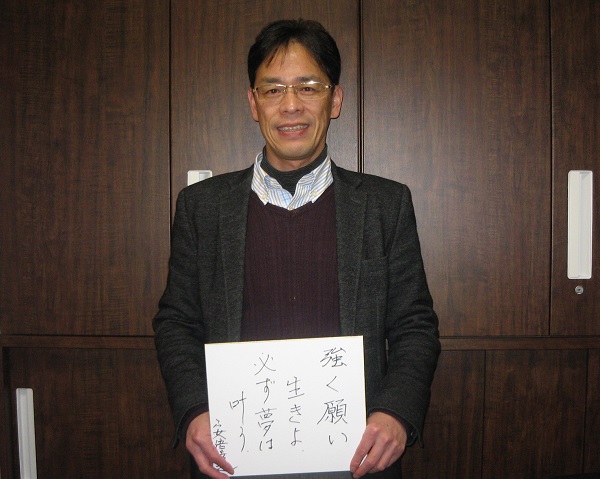 強く願い
生きよ
必ず夢は
叶う